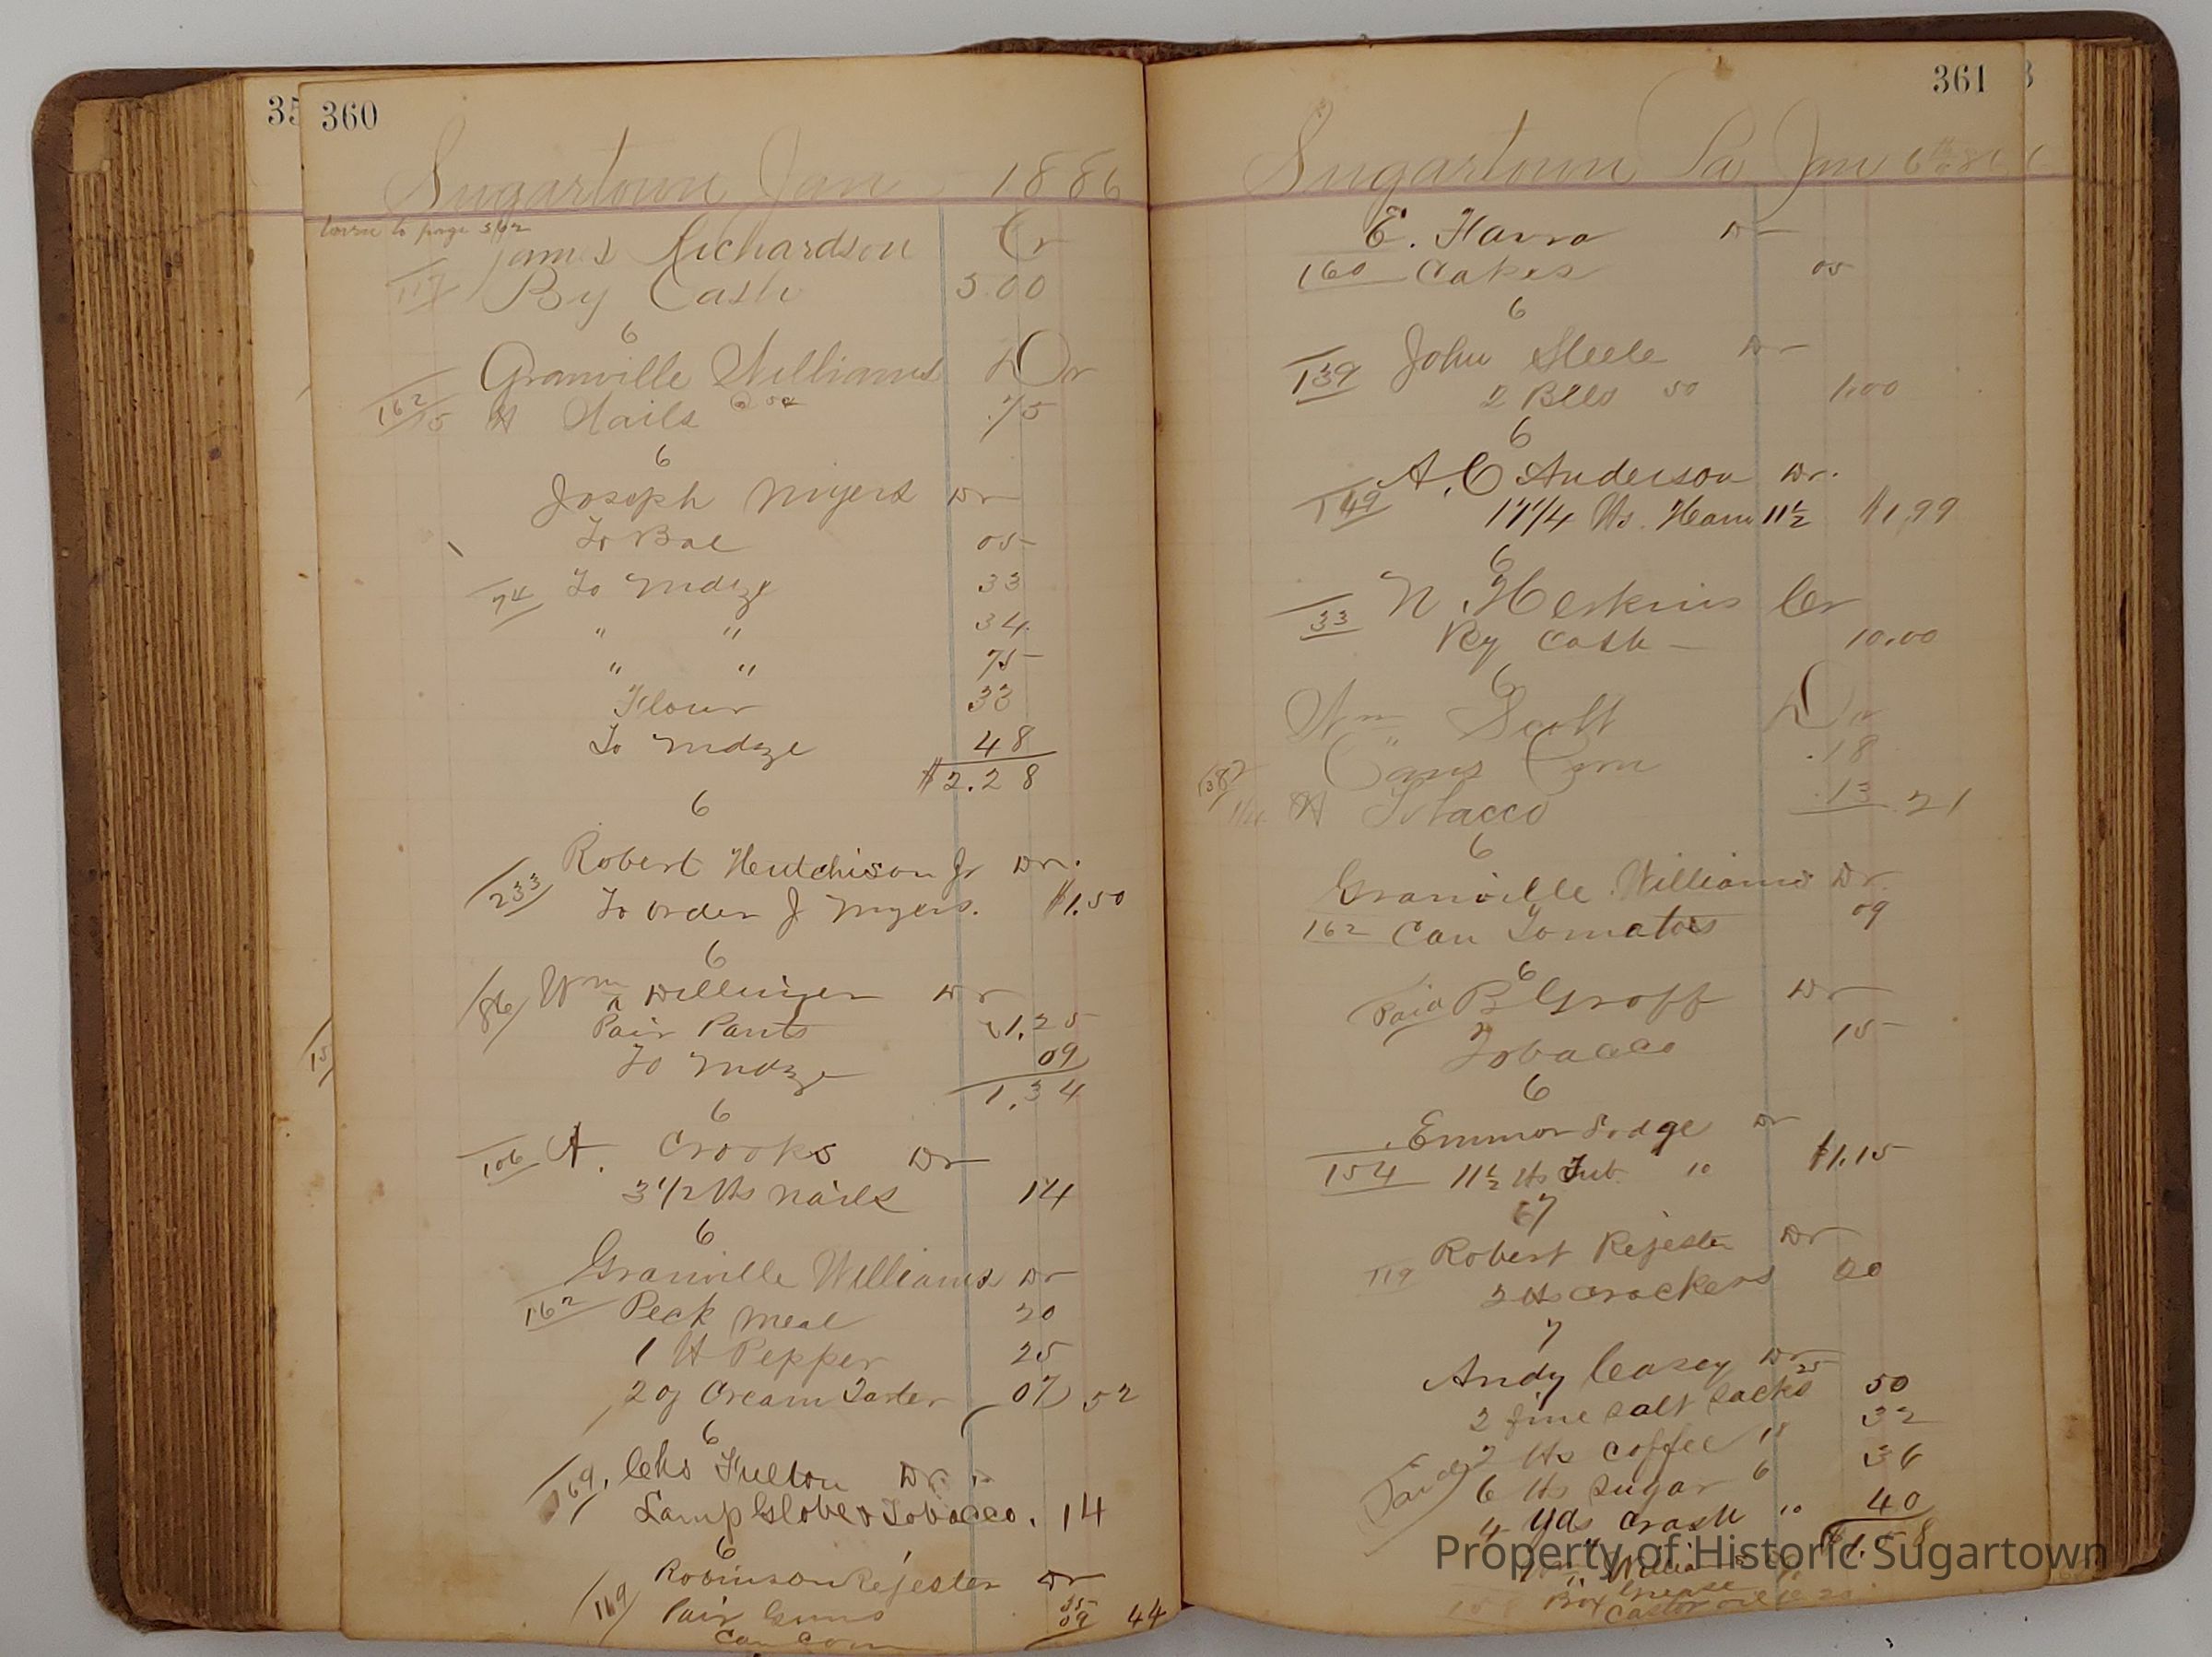 360
Sugartown Jan 1886
to page 362
James Richardson Cr
117 By Cash 5.00
6
Granville Williams Dr
162 15 lb Nails @ 5c .75
6
Joseph Myers Dr
To Bal 05
74 To Mdze 33
" " 34
" " 75
Flour 33
To Mdze 48
$2.28
6
Robert Hutchison Jr Dr.
233 To order J Myers. $1.50
6
86 Wm Dellinger Dr
Pair Pants 1.25
To Mdze 09
1.34
6
106 A. Crooks Dr
3 1/2 lbs nails 14
6
Granville Williams Dr
162 Peck Meal 20
1 lb Pepper 25
2 oz Cream Tarter 07 52
6
169. Chs Fulton Dr.
Lamp Globe & Tobacco. 14
6
Robinson Rejester Dr
119 Pair Gums 35
Can Corn 09 44
361
Sugartown Pa Jan 6th 86
E. Harra Dr
160 Cakes 05
6
John Steele Dr
139 2 Blls 50 1.00
6
A. C Anderson Dr.
149 17 1/4 lbs. Ham 11 1/2 $1.99
6
N. Herkins Cr
33 By Cash 10.00
6
Wm Scott Dr
Cans Corn .18
138 lb Tobacco .13 .21
6
Granville Williams Dr
162 Can Tomatoes 09
6
Paid B Groff Dr
Tobacco 15
6
Emmor Dodge Dr
154 11 1/2 lbs Tub 10 $1.15
7
Robert Rejester Dr
119 2 lbs crackers 20
7
Andy Casey Dr
2 fine salt sacks 25 50
2 lbs coffee 18 32
Paid 6 lbs sugar 6 36
4 yds Crash 10 40
$1.58
Property of Historic Sugartown
Box Grease
Castor oil